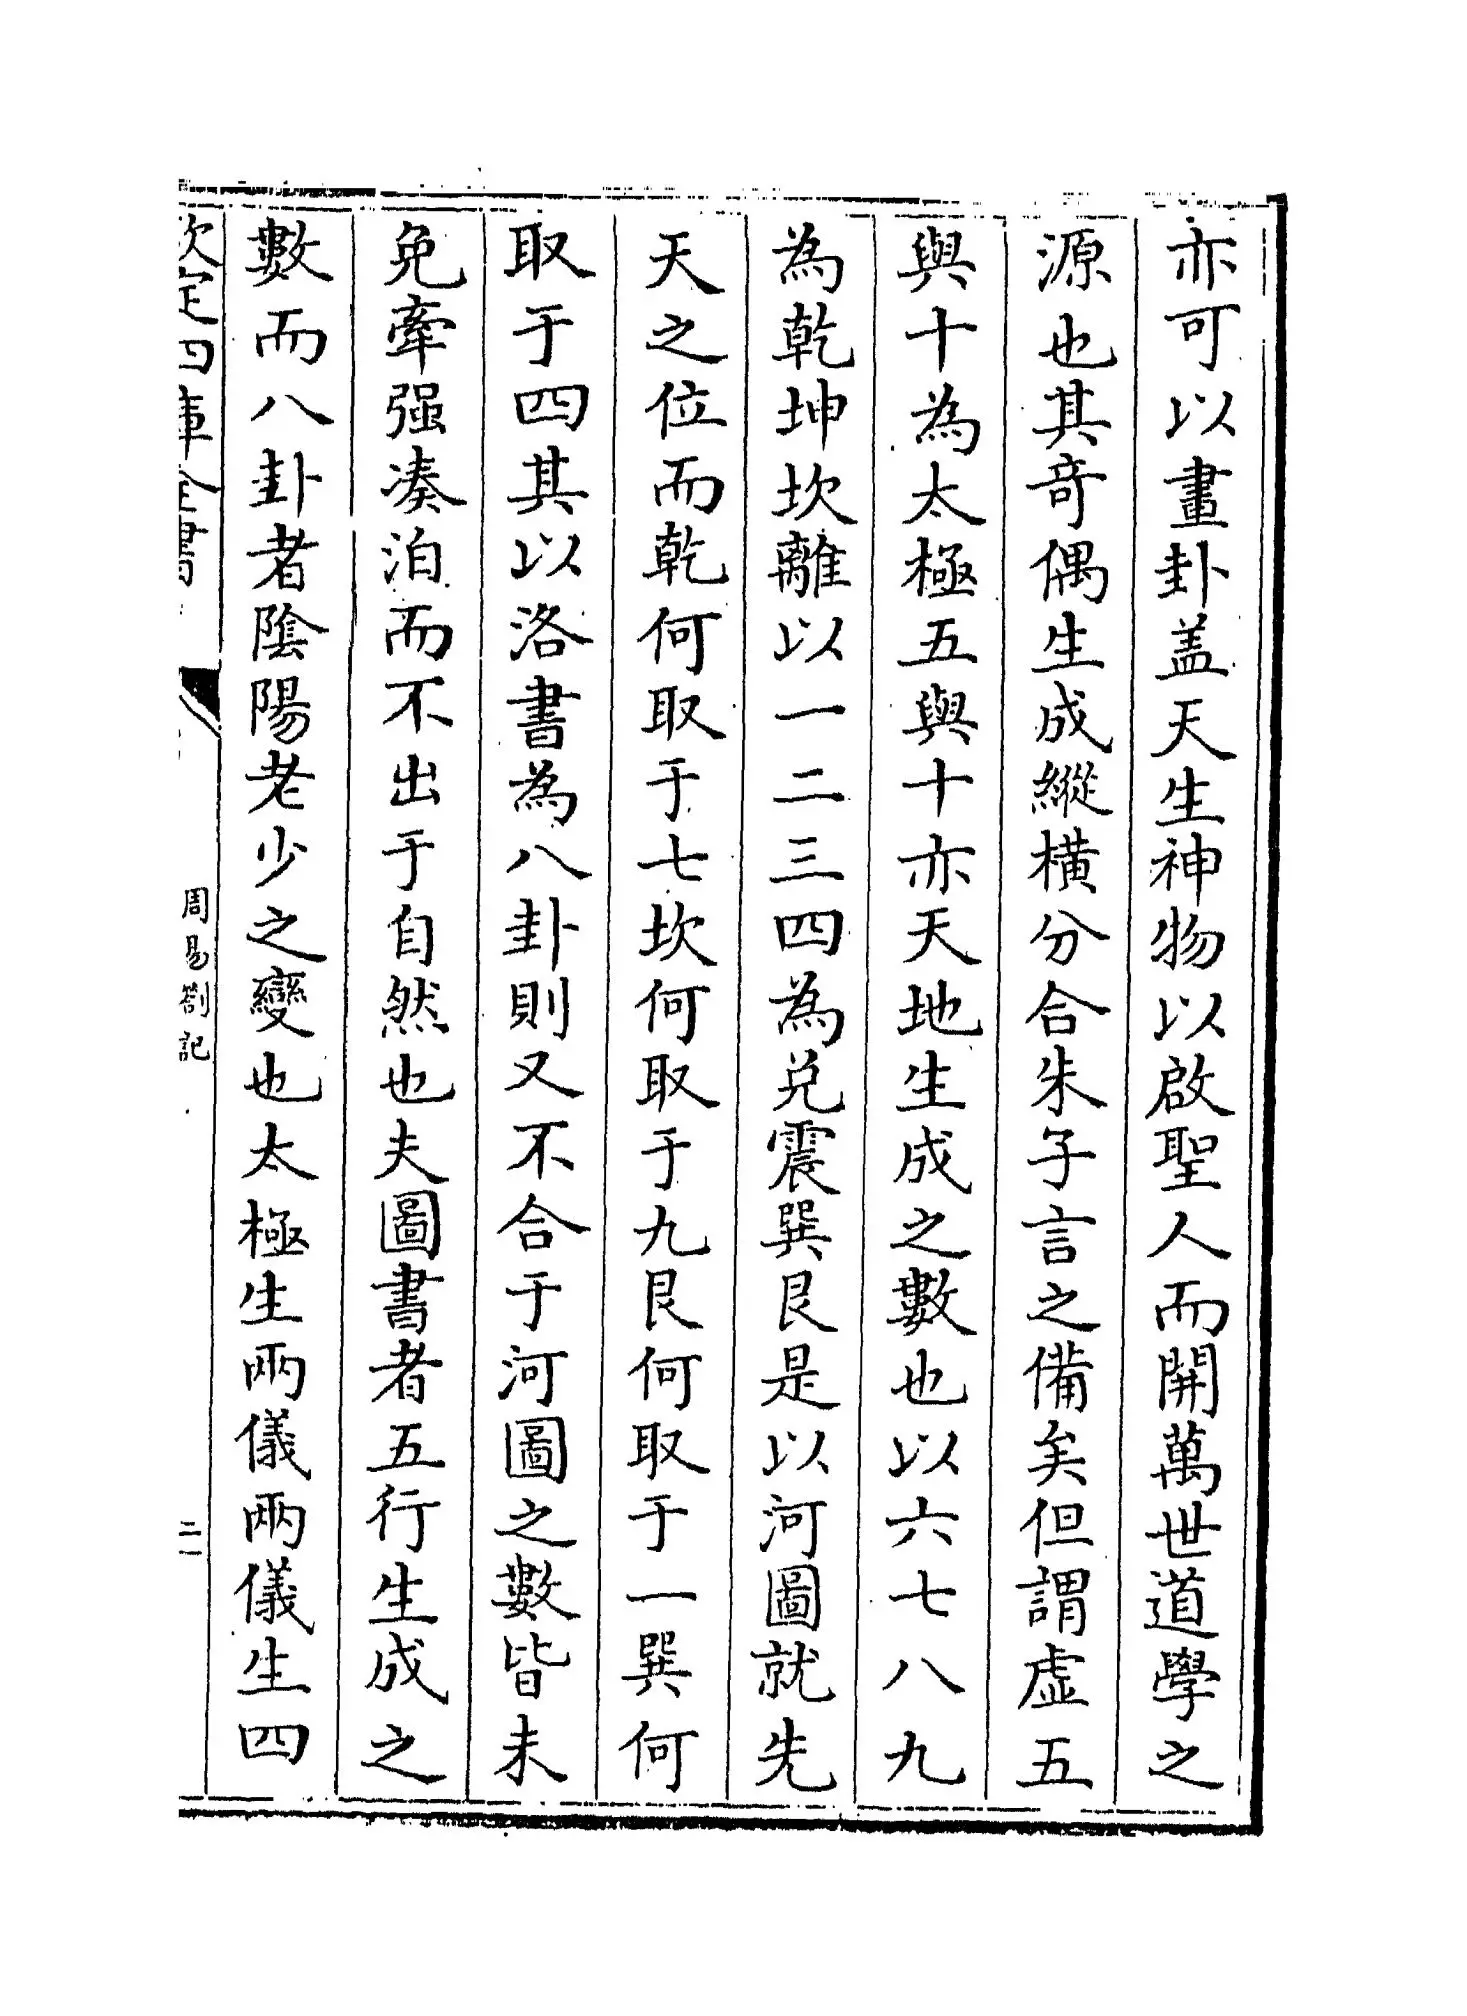 亦可以畫卦盖天生神物以啟聖人而開萬世道學之
源也其竒偶生成縱横分合朱子言之備矣但謂虛五
與十為太極五與十亦天地生成之數也以六七八九
為乾坤坎離以一二三四為兑震巽艮是以河圖就先
天之位而乾何取于七坎何取于九艮何取于一巽何
取于四其以洛書為八卦則又不合于河圖之數皆未
免牽强凑泊而不出于自然也夫圖書者五行生成之
數而八卦者陰陽老少之變也太極生兩儀兩儀生四
欽定四庫全書
周易劄記
二